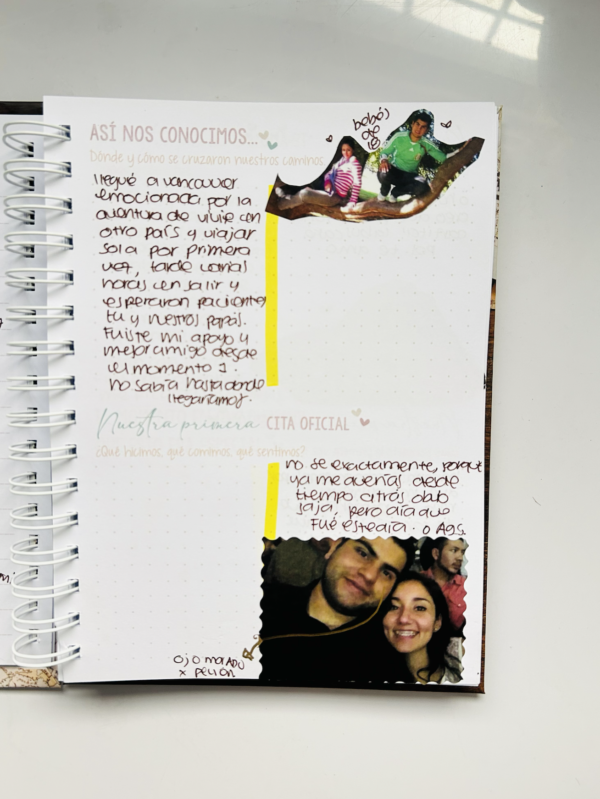 ASÍ NOS CONOCIMOS...
Dónde y cómo se cruzaron nuestros caminos
bebés
de
llegué a vancouver
emocionada por la
aventura de vivir en
otro país y viajar
sola por primera
vez, tarde varias
horas en salir y
esperaron pacientes
tu y nuestros papás.
Fuiste mi apoyo y
mejor amigo desde
el momento 1.
no sabía hasta donde
llegaríamos.
Nuestra primera CITA OFICIAL
¿Qué hicimos, qué comimos, qué sentimos?
no se exactamente, porque
ya me querías desde
tiempo atrás
pero día que
Fué este día. o Ags.
Ojo morado
x peleon